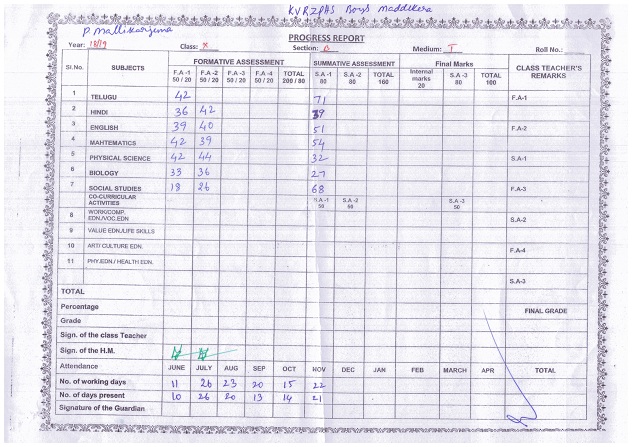 KVRZPHS Boys Maddikera
P. Mallikarjuna
PROGRESS REPORT
Year: 18/19 Class: X Section: B Medium: T Roll No.:
Sl.No. SUBJECTS FORMATIVE ASSESSMENT SUMMATIVE ASSESSMENT Final Marks CLASS TEACHER'S REMARKS
F.A -1 50 / 20 F.A -2 50 / 20 F.A -3 50 / 20 F.A -4 50 / 20 TOTAL 200 / 80 S.A -1 80 S.A -2 80 TOTAL 160 Internal marks 20 S.A -3 80 TOTAL 100
1 TELUGU 42 71 F.A-1
2 HINDI 36 42 39
3 ENGLISH 39 40 51 F.A-2
4 MAHTEMATICS 42 39 54
5 PHYSICAL SCIENCE 42 44 32 S.A-1
6 BIOLOGY 33 36 27
7 SOCIAL STUDIES 18 26 68 F.A-3
CO-CURRICULAR ACTIVITIES S.A -1 50 S.A -2 50 S.A -3 50
8 WORK/COMP. EDN./VOC.EDN S.A-2
9 VALUE EDN./LIFE SKILLS
10 ARTI CULTURE EDN. F.A-4
11 PHY.EDN./ HEALTH EDN.
S.A-3
TOTAL
Percentage FINAL GRADE
Grade
Sign. of the class Teacher
Sign. of the H.M.
Attendance JUNE JULY AUG SEP OCT NOV DEC JAN FEB MARCH APR TOTAL
No. of working days 11 26 23 20 15 22
No. of days present 10 26 20 13 14 21
Signature of the Guardian